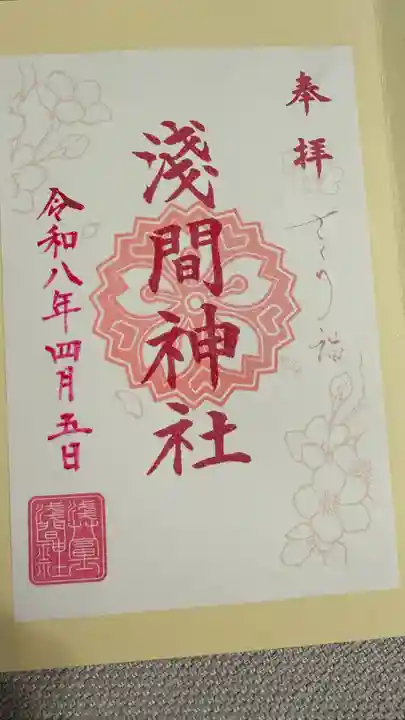 奉拝
さくら詣
淺間神社
令和八年四月五日
淺草
淺間神社